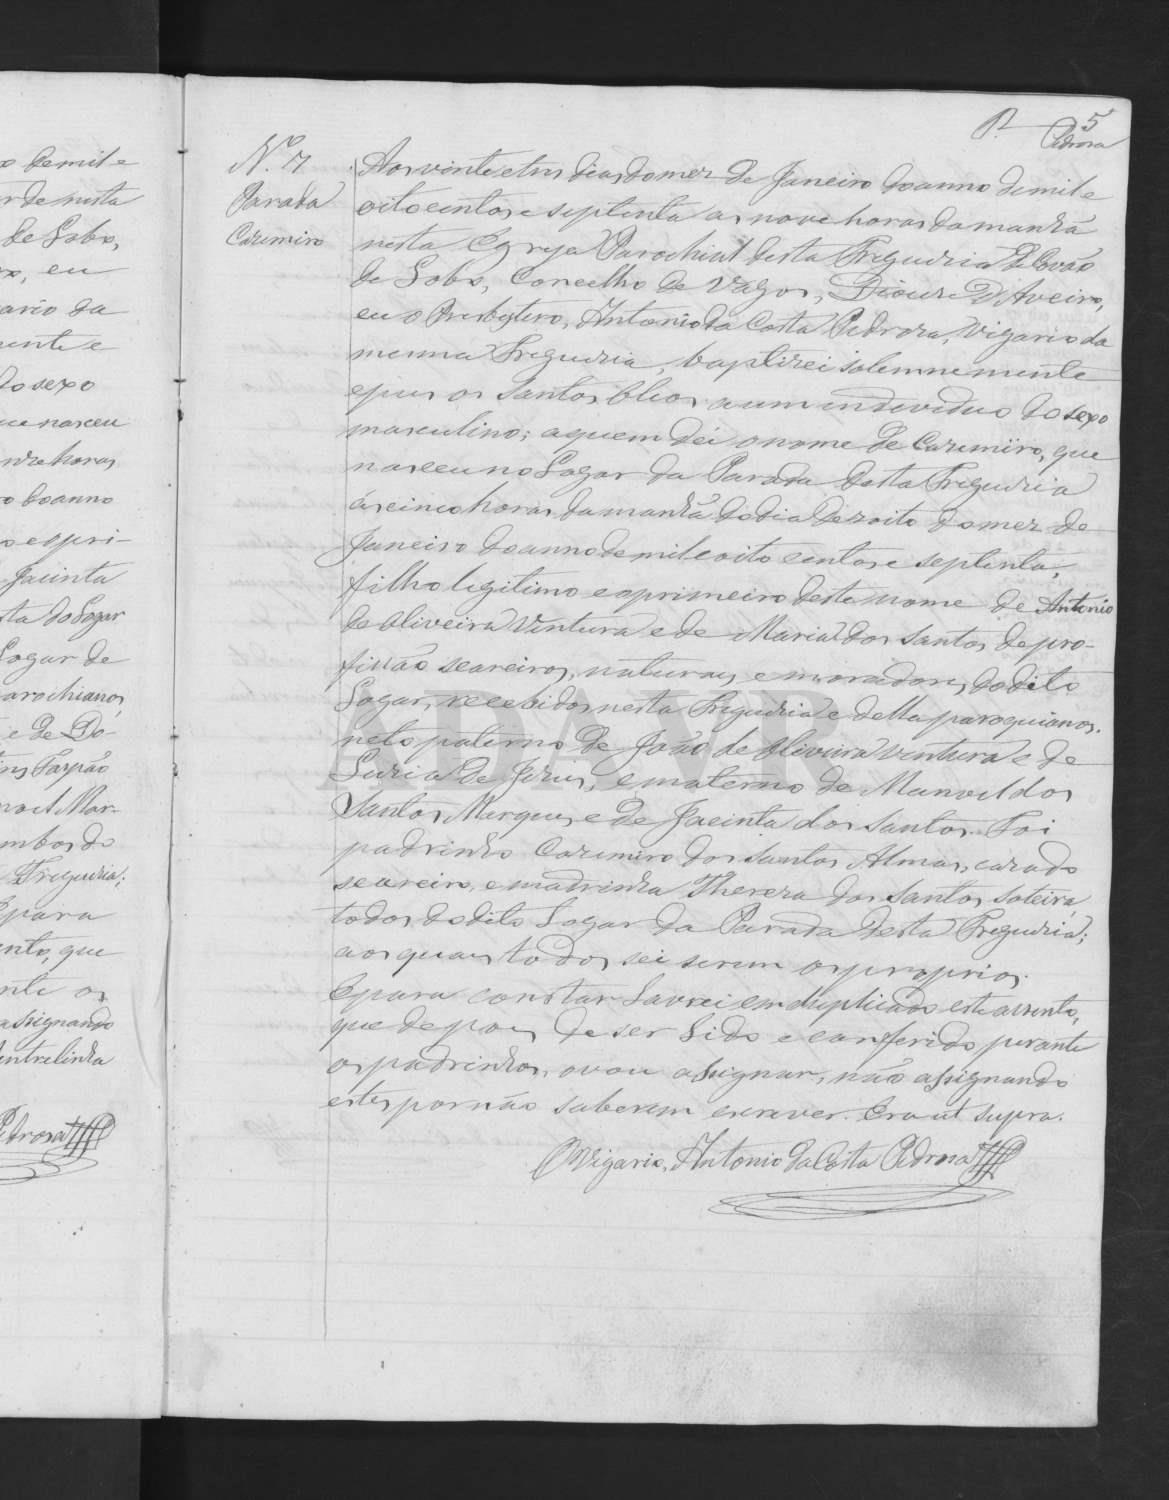 o de mil e
de Lobo,
eu
ario da
ente e
do sexo
que nasceu
horas
o do anno
o e o pri-
Jacinta
sta do Logar
Logar de
arochianos,
e de Do-
Mar-
ambos do
Freguezia;
E para
ento, que
nte os
assignando
entrelinha
Pedrosa
5
Pedrosa
N.º 7
Parada
Cazemiro
Aos vinte e tres dias do mez de Janeiro do anno de mil e
oito centos e septenta as nove horas da manhã
nesta Egreja Parochial desta Freguezia de Covão
de Lobo, Concelho de Vagos, Diouze D'Aveiro,
eu o Presbytero, Antonio da Costa Pedroza, Vigario da
mesma Freguezia, baptizei solemnemente
e pus os Santos Oleos a um individuo do sexo
masculino; a quem dei o nome de Cazemiro, que
nasceu no Logar da Parada desta Freguezia
ás cinco horas da manhã do dia dezoito do mez de
Janeiro do anno de mil e oito centos e septenta,
filho legitimo e o primeiro deste nome de Antonio
de Oliveira Ventura e de Maria dos Santos de pro-
fissão seareiros, naturaes e moradores, do dito
Logar, recebidos nesta Freguezia e della paroquianos.
neto paterno de João de Oliveira Ventura e de
Luzia de Jezus, e materno de Manoel dos
Santos Marques e de Jacinta dos Santos. Foi
padrinho Cazemiro dos Santos Almas, cazado
seareiro, e madrinha Thereza dos Santos soteira,
todos do dito Logar da Parada desta Freguezia;
aos quaes todos sei serem os proprios.
E para constar Lavrei em duplicado este assento,
que depois de ser Lido e conferido perante
os padrinhos, o vou assignar, não assignando
estes por não saberem escrever. Era ut supra.
O Vigario, Antonio da Costa Pedrosa
ADAVR